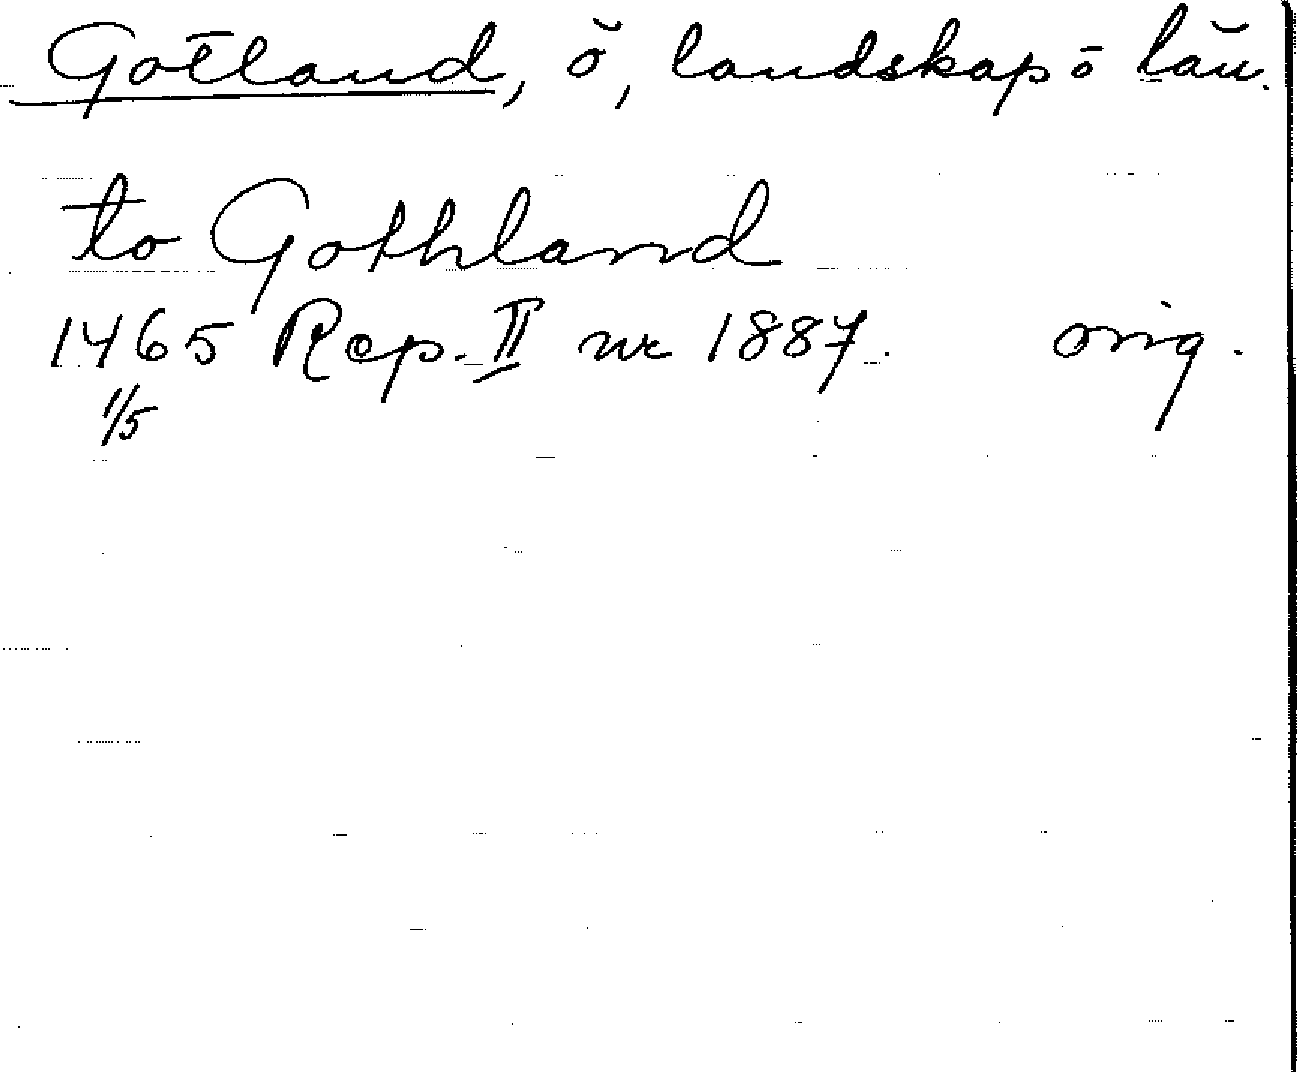 Gotland, ö, landskap o län.
to Gothland
1465 Rep. II nr 1887. orig.
1/5